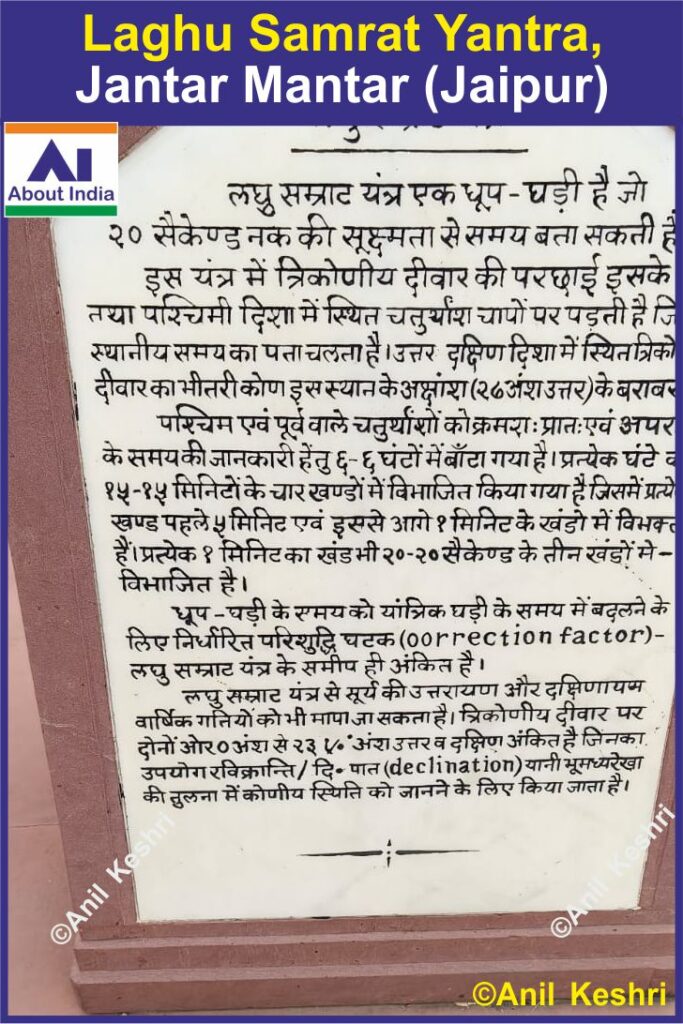 Laghu Samrat Yantra,
Jantar Mantar (Jaipur)
AI
About India
लघु सम्राट यंत्र एक धूप - घड़ी है जो
२० सैकेण्ड नक की सूक्ष्मता से समय बता सकती है
इस यंत्र में त्रिकोणीय दीवार की परछाई इसके
तथा पश्चिमी दिशा में स्थित चतुर्थांश चापों पर पड़ती है जि
स्थानीय समय का पता चलता है। उत्तर दक्षिण दिशा में स्थित त्रिको
दीवार का भीतरी कोण इस स्थान के अक्षांश (२७ अंश उत्तर) के बराबर
पश्चिम एवं पूर्व वाले चतुर्थांशों को क्रमशः प्रातः एवं अपर
के समय की जानकारी हेतु ६-६ घंटों में बाँटा गया है। प्रत्येक घंटे
१५-१५ मिनिटों के चार खण्डों में विभाजित किया गया है जिसमें प्रत्ये
खण्ड पहले ५ मिनिट एवं इससे आगे १ मिनिट के खंडो में विभक्त
हैं। प्रत्येक १ मिनिट का खंड भी २०-२० सैकेण्ड के तीन खंडों मे-
विभाजित है।
धूप - घड़ी के समय को यांत्रिक घड़ी के समय में बदलने के
लिए निर्धारित परिशुद्धि घटक (correction factor)-
लघु सम्राट यंत्र के समीप ही अंकित है।
लघु सम्राट यंत्र से सूर्य की उत्तरायण और दक्षिणायण
वार्षिक गतियों को भी मापा जा सकता है। त्रिकोणीय दीवार पर
दोनों ओर ० अंश से २३ अंश उत्तर व दक्षिण अंकित है जिनका
उपयोग रविक्रान्ति/ दि॰ पात (declination) यानी भूमध्यरेखा
की तुलना में कोणीय स्थिति को जानने के लिए किया जाता है।
©Anil Keshri
©Anil Keshri
©Anil Keshri